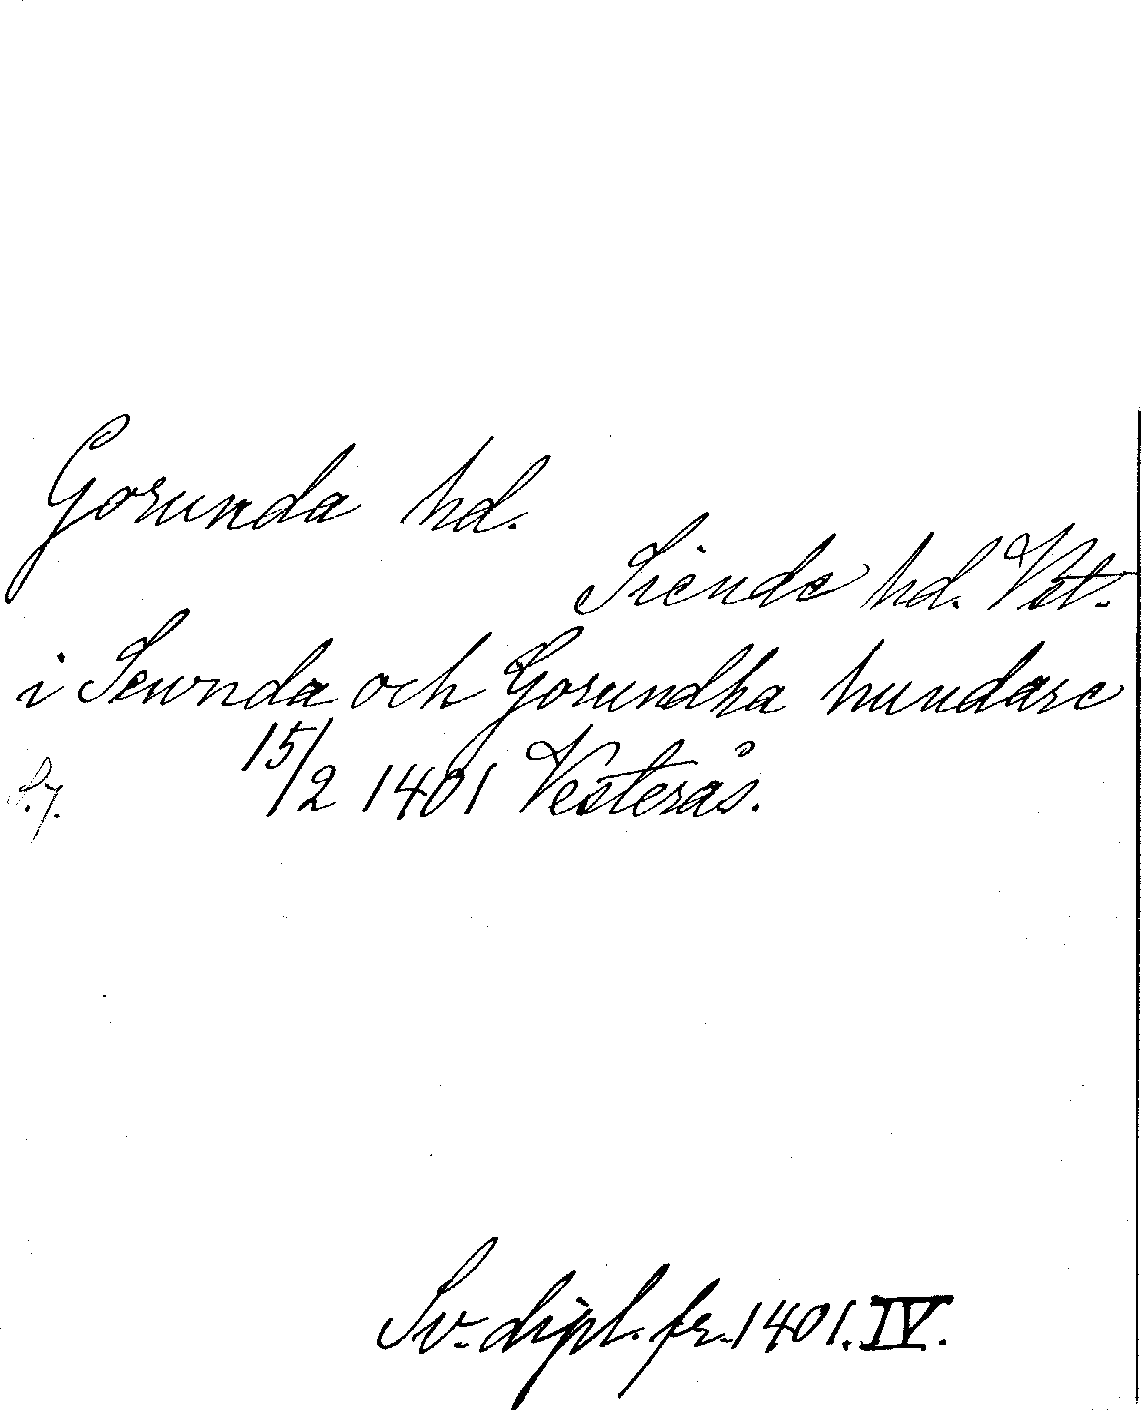 Gorunda hd.
Siende hd. Vst.
i Sewnda och Gorundha hundare
15/2 1401 Vesterås.
S. 7.
Sv. dipl. fr. 1401. IV.